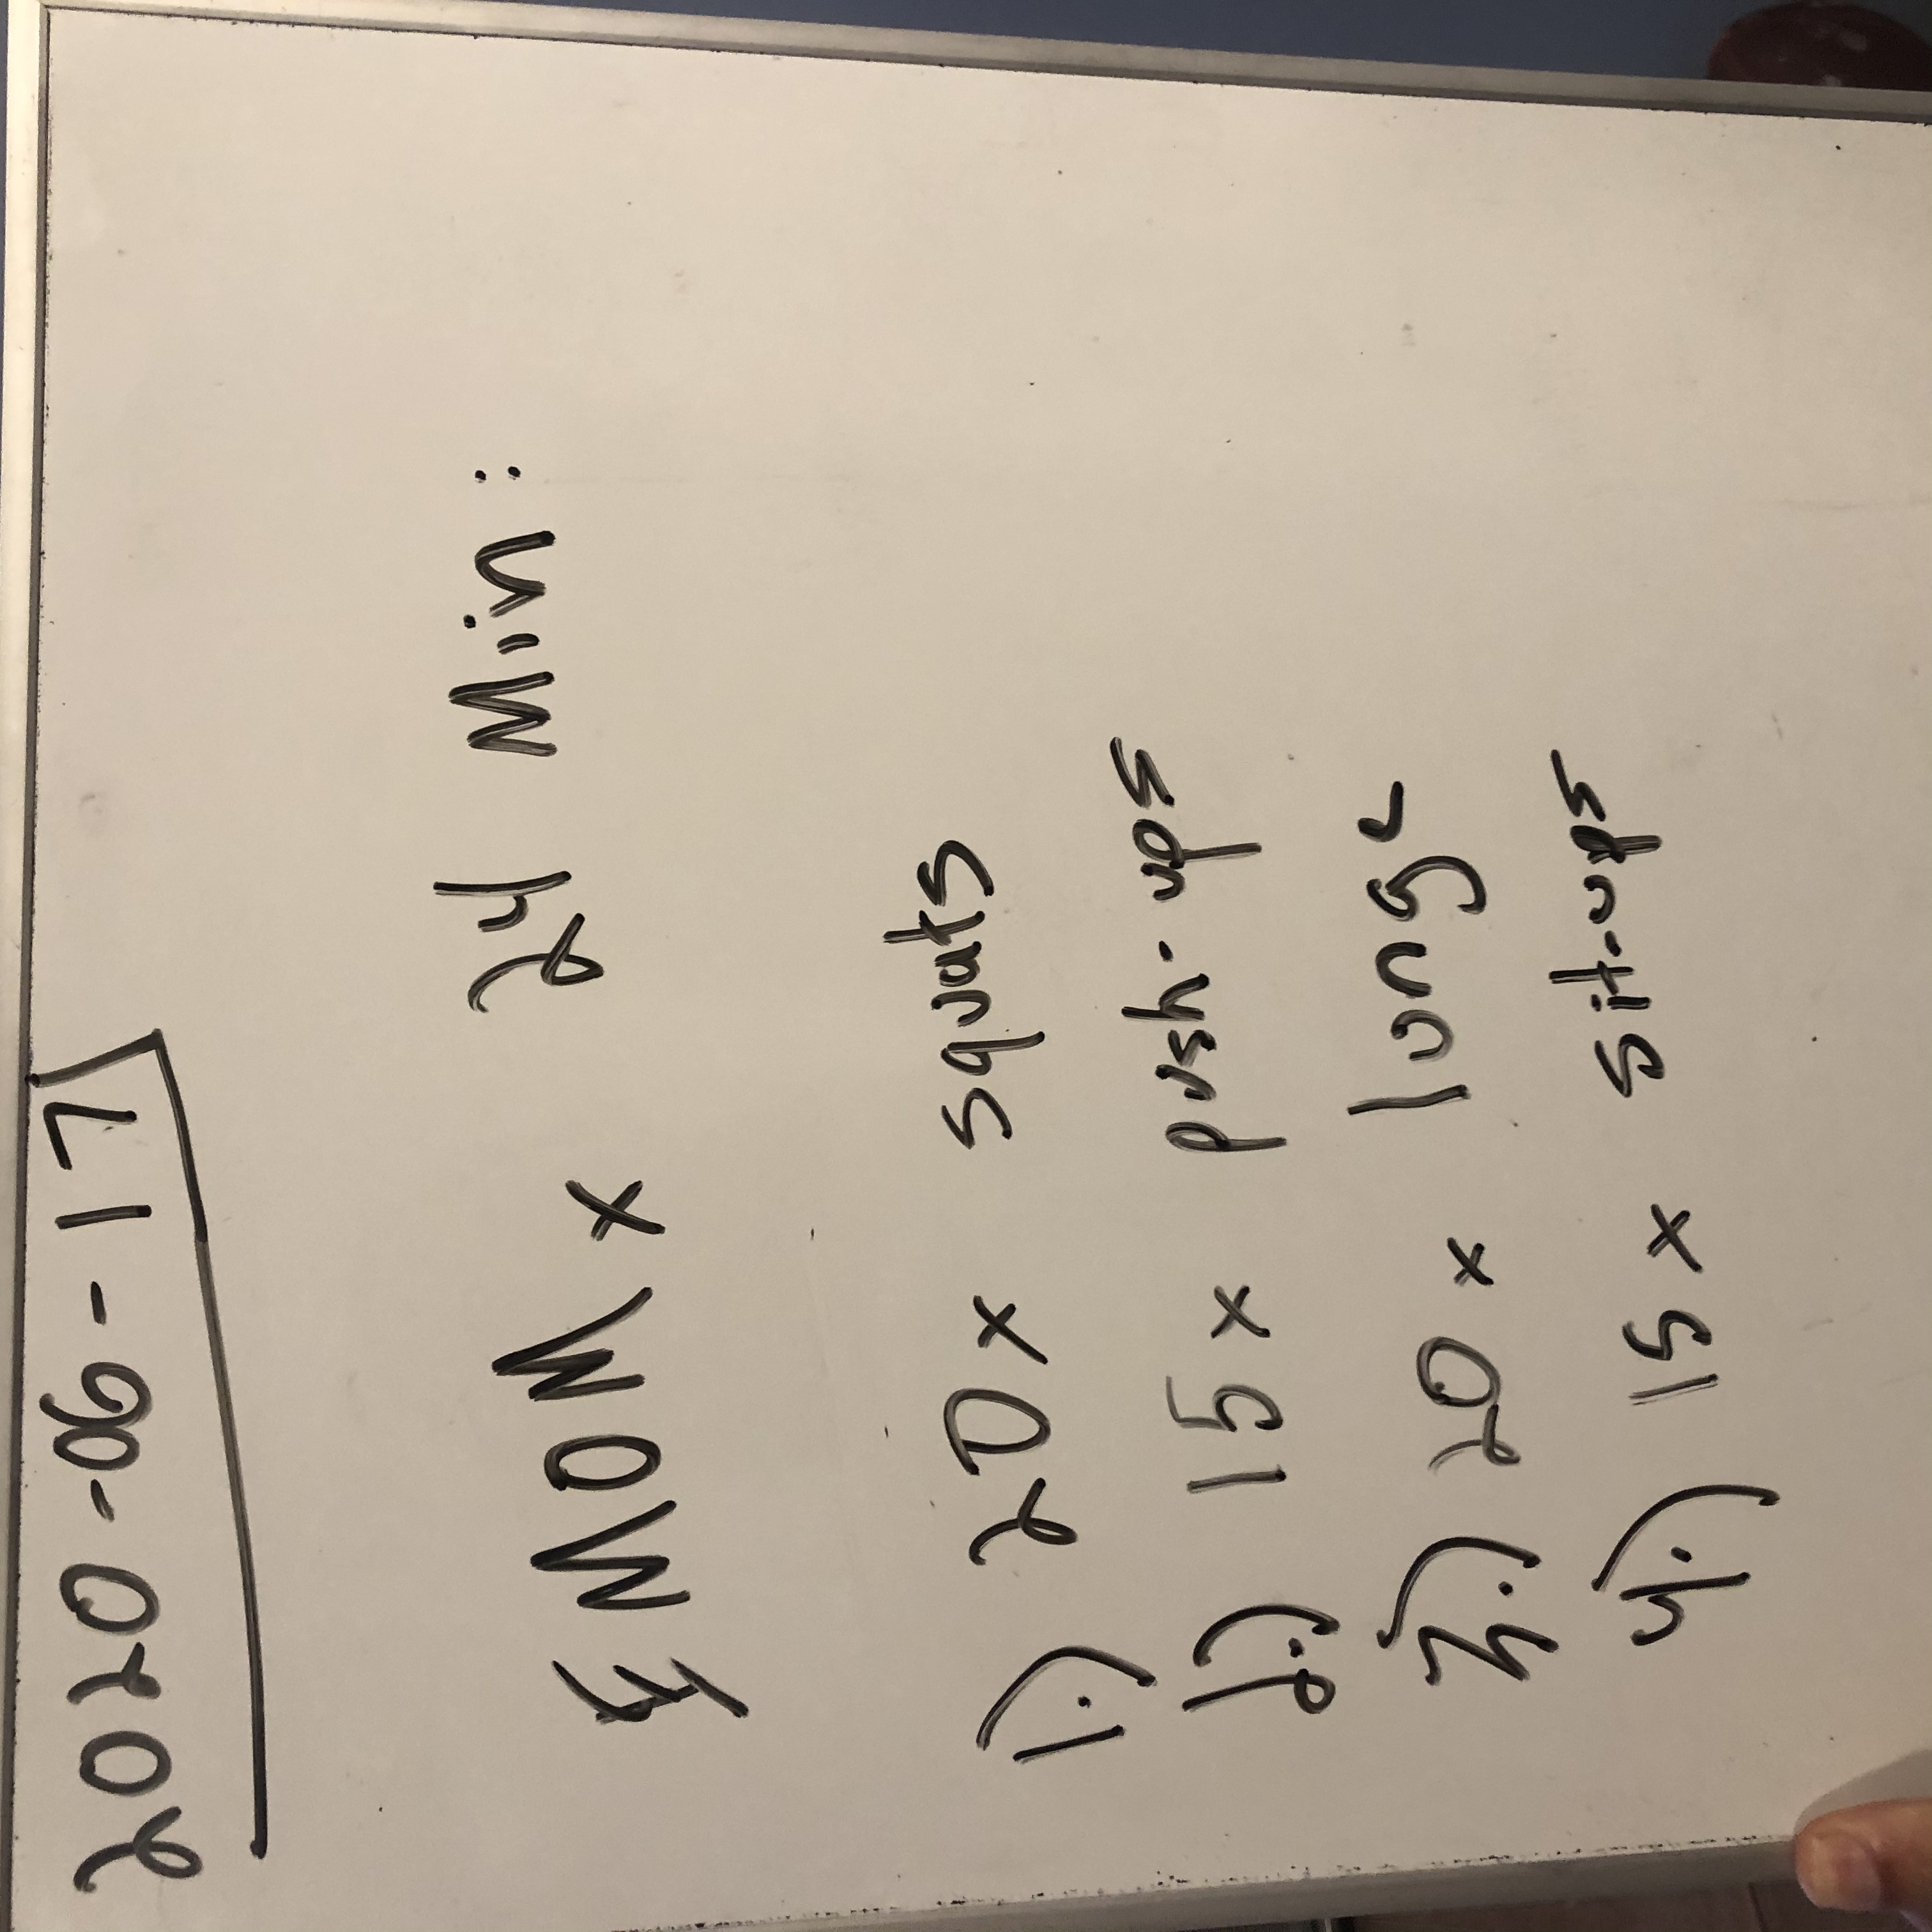 2020-06-17
EMOM x 24 Min:
1.) 20x squats
2.) 15x push-ups
3.) 20x lunge
4.) 15x sit-ups